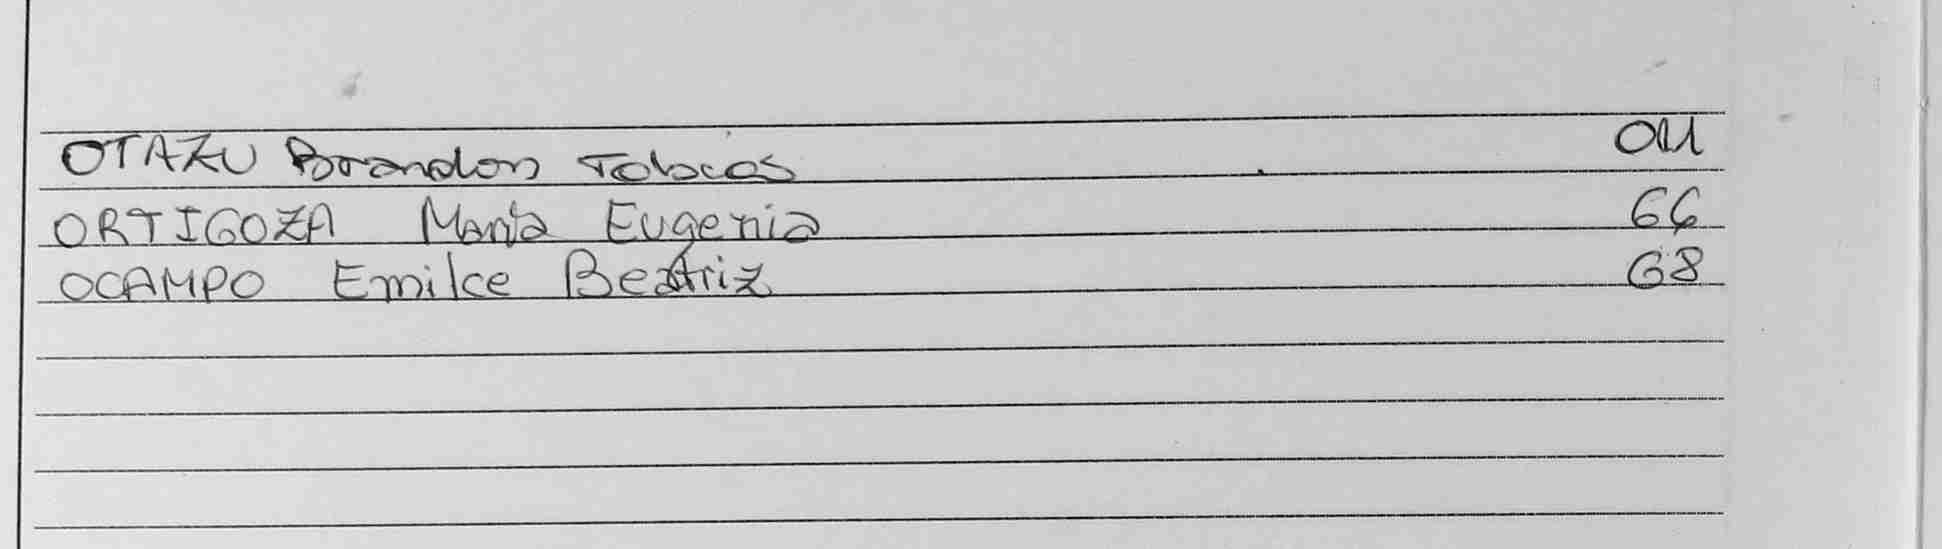 OTAZU Brandon Tobias
ORTIGOZA María Eugenia 66
OCAMPO Emilce Beatriz 68